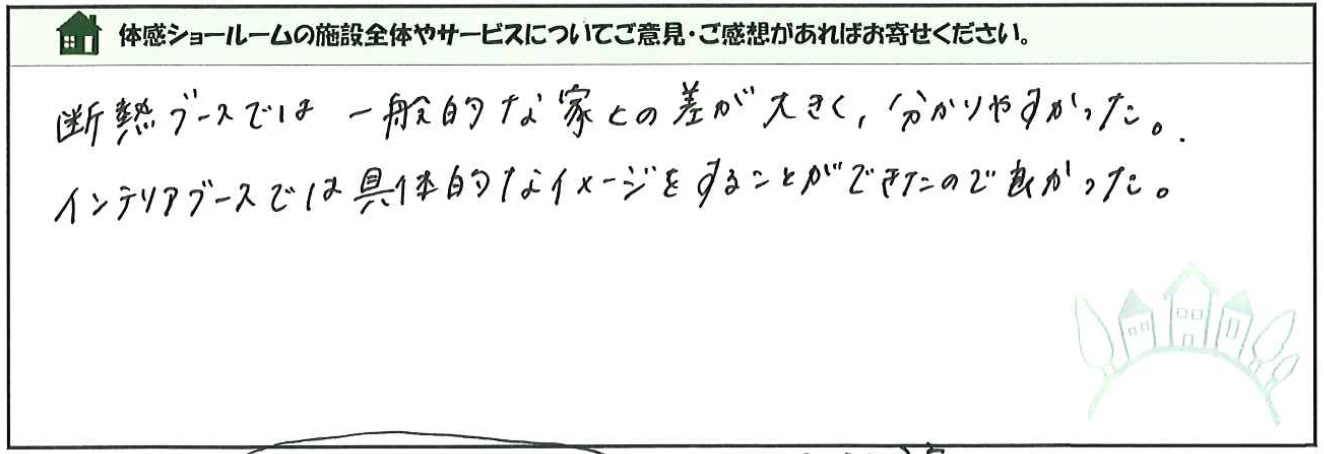 体感ショールームの施設全体やサービスについてご意見・ご感想があればお寄せください。
断熱ブースでは一般的な家との差が大きく、分かりやすかった。
インテリアブースでは具体的なイメージをすることができたので良かった。